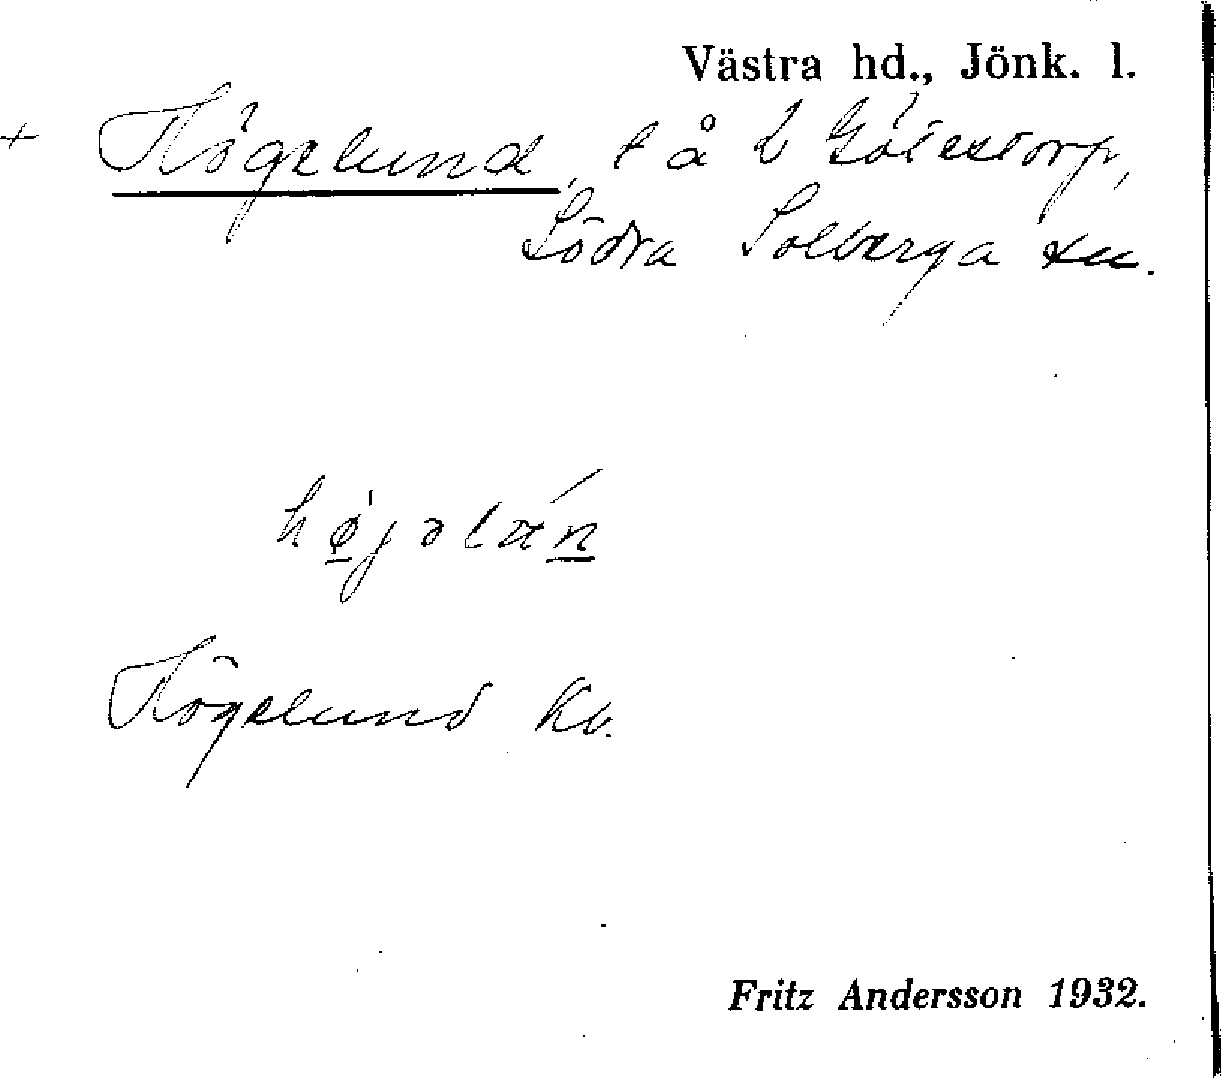 Västra hd., Jönk. l.
+ Högelund, l å Götestorp,
Södra Solberga sn.
Högelund Kb.
Fritz Andersson 1932.